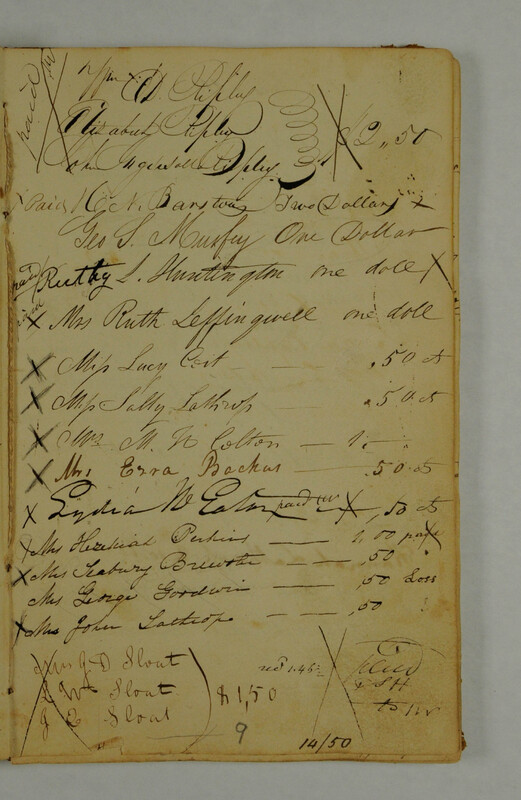 paid
Wm. D. Ripley
Elizabeth Ripley
John Ripley
$2,,50
Paid H. N. Barstow Two Dollars X
Geo S. Murfey One Dollar
paid Ruthy L. Huntington one doll X
X Mrs Ruth Leffingwell one doll
X Miss Lucy Coit — .50 ct
X Miss Sally Lathrop — .50 ct
X Mrs M. N Colton — 1. "
X Mrs Ezra Backus — .50 ct
X Lydia W Eaton paid X ,50 ct
X Mrs Hezekiah Perkins — 1,00 paid
X Mrs Seabury Brewster — — ,50 "
Mrs George Goodwin — ,50 Loss
X Mrs John Lathrope — — ,50 "
Mrs J. D Sloat
J W Sloat
J E Sloat
$1,50
1.45
Paid
9
14/50